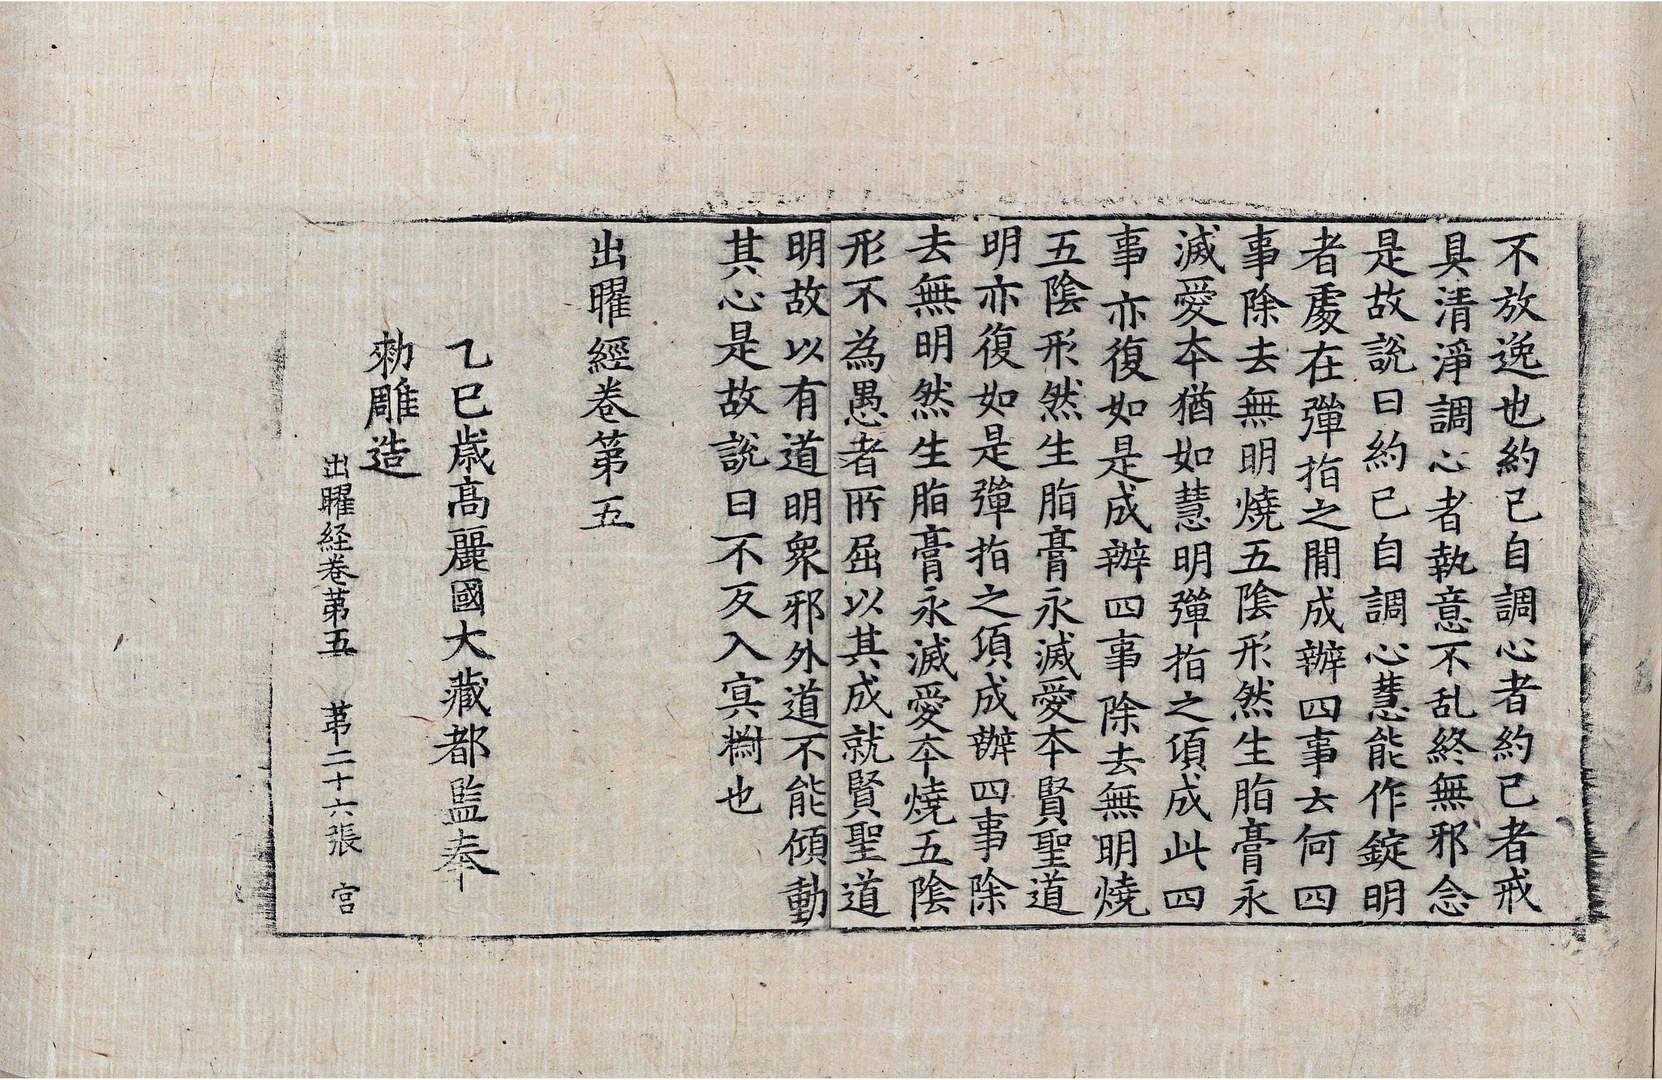 不放逸也約己自調心者約己者戒
具清淨調心者執意不乱終無邪念
是故說曰約己自調心慧能作錠明
者處在彈指之閒成辦四事去何四
事除去無明燒五陰形然生脂膏永
滅愛本猶如慧明彈指之頃成此四
事亦復如是成辦四事除去無明燒
五陰形然生脂膏永滅愛本賢聖道
明亦復如是彈指之頃成辦四事除
去無明然生脂膏永滅愛本燒五陰
形不為愚者所屈以其成就賢聖道
明故以有道明衆邪外道不能傾動
其心是故說曰不反入冥樹也
出曜經卷第五
乙巳歳高麗國大藏都監奉
勑雕造
出曜経卷苐五 苐二十六張 宮